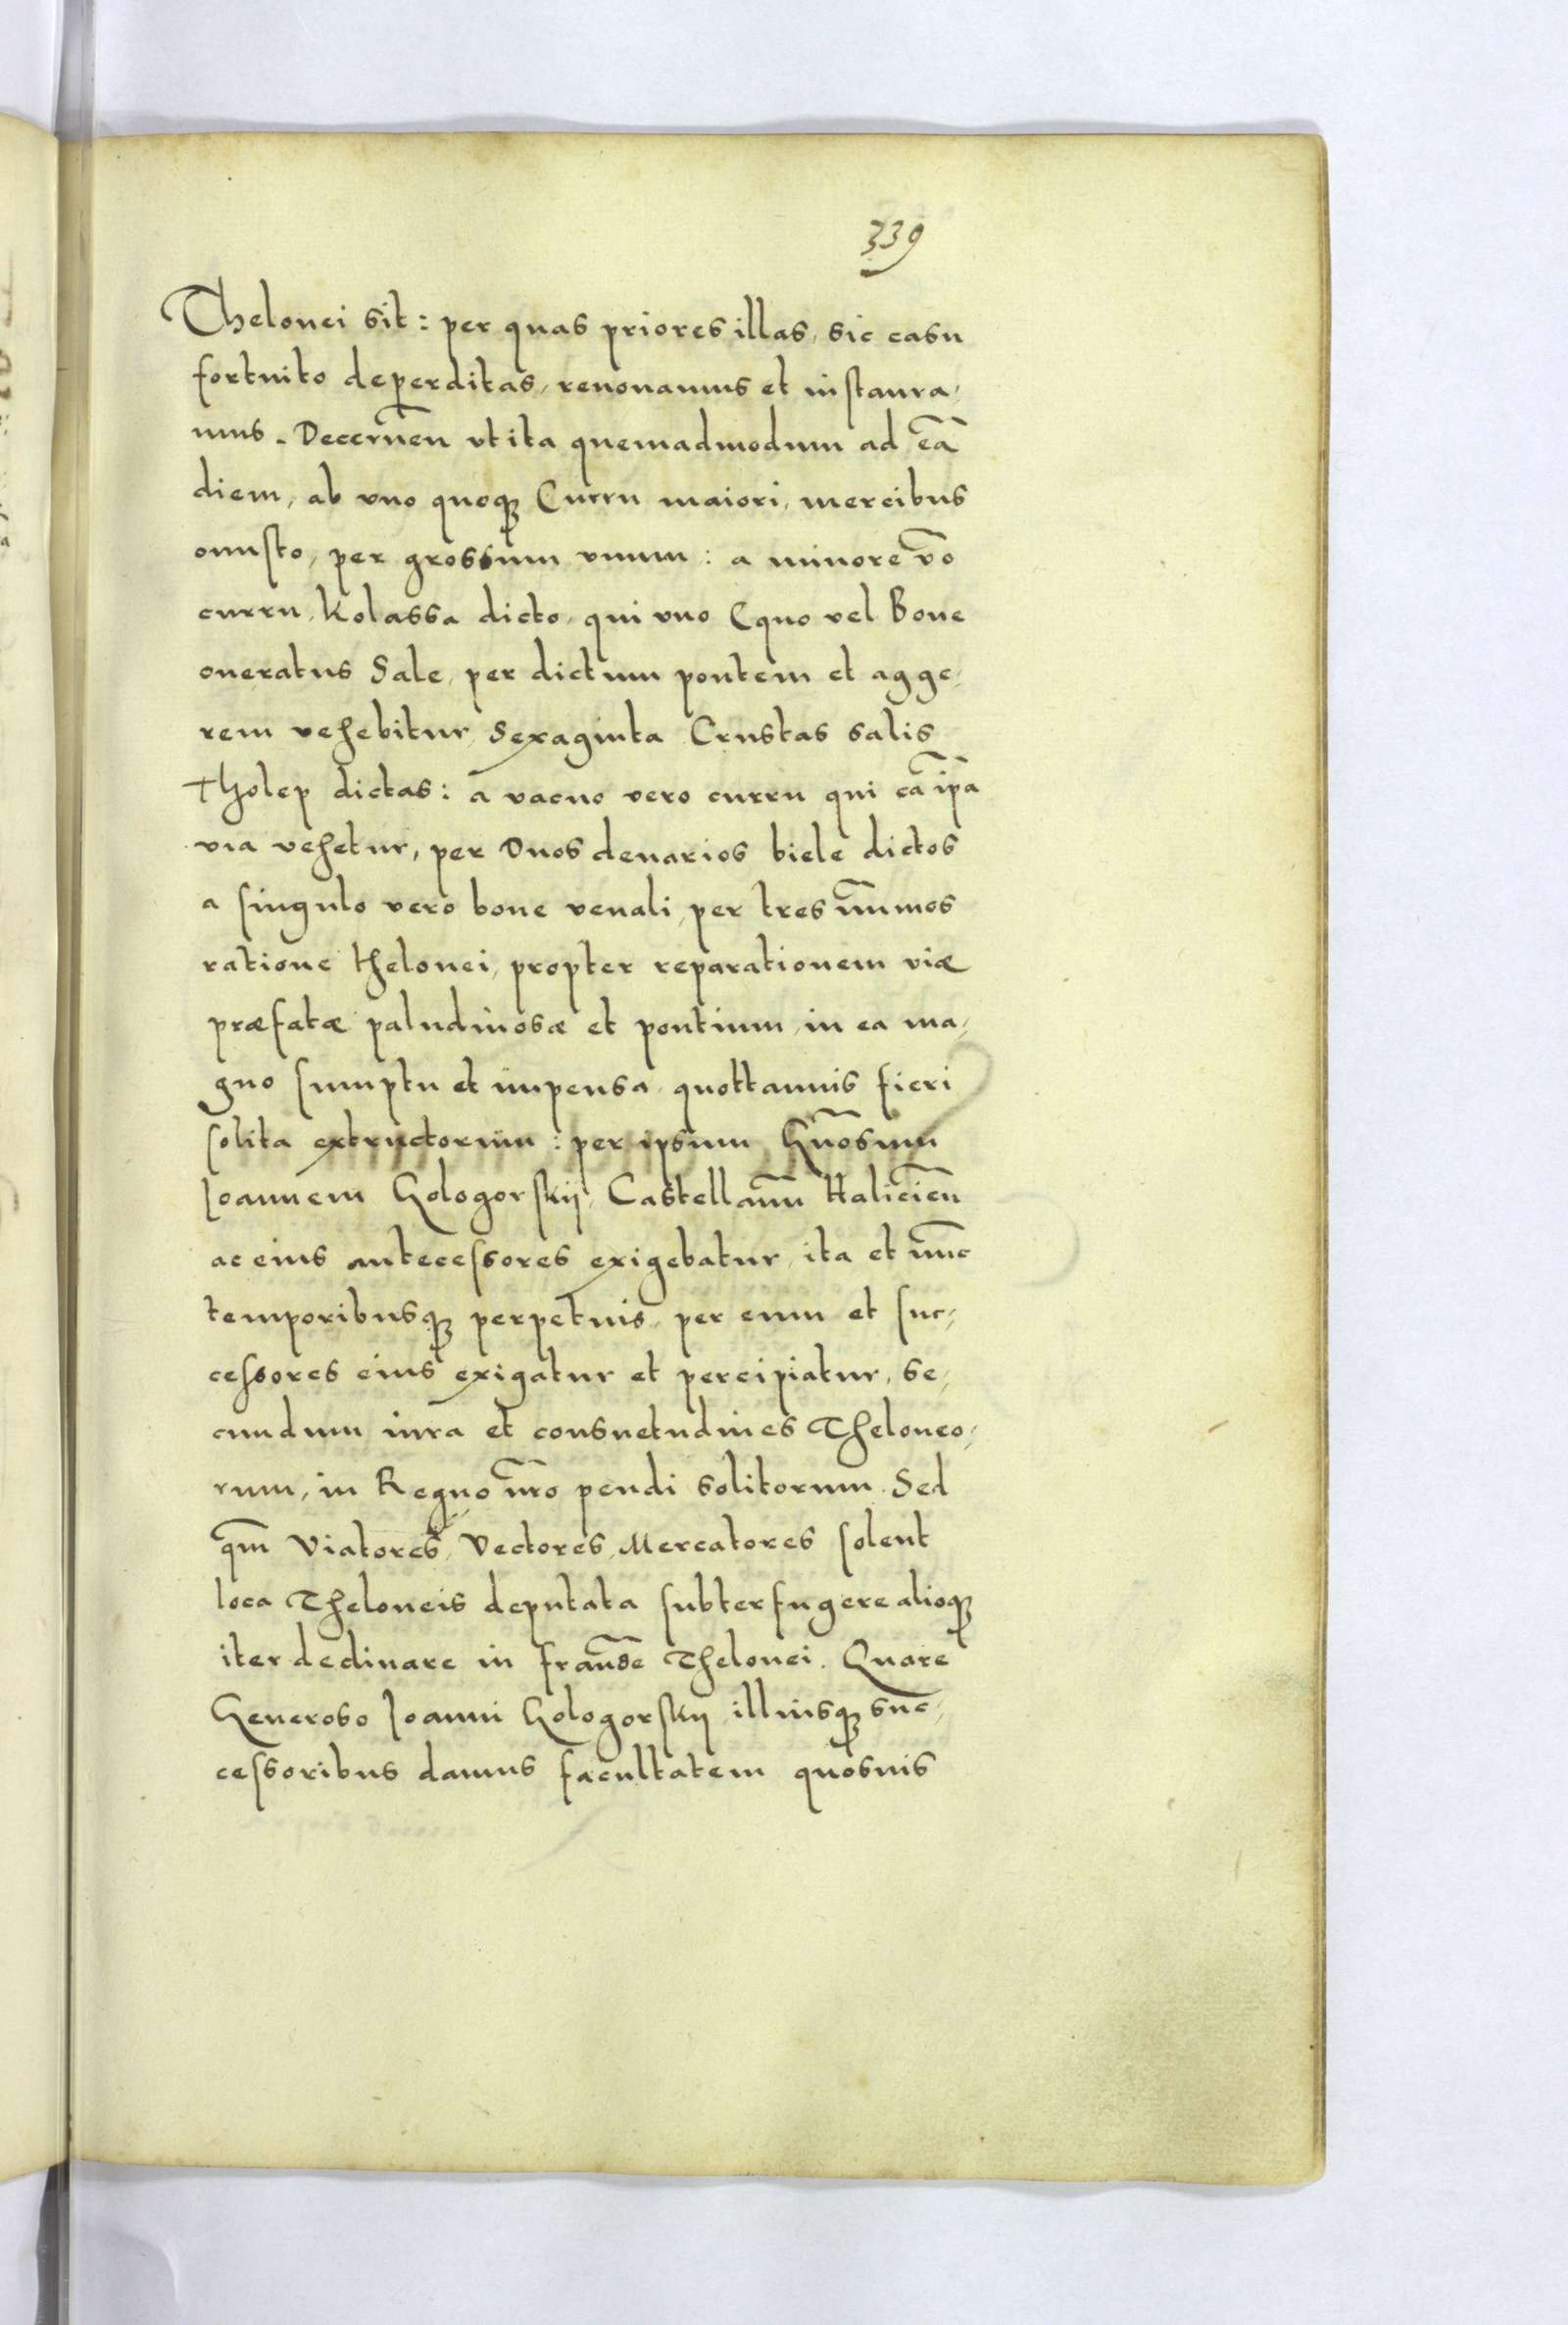 339
Thelonei sit: per quas priores illas, sic casu
fortuito deperditas, renouamus et instaura,
mus. Decernen̄ vt ita quemadmodum ad eā
diem, ab vno quoqꝫ Curru maiori, mercibus
onusto, per grossum vnum: a minore v̄o
curru, Kolassa dicto, qui vno Equo vel Boue
oneratus Sale, per dictum pontem et agge,
rem vehebitur, Sexaginta Crustas salis
Tholep dictas: a vacuo vero curru qui eā ip̄a
via vehetur, per Duos denarios biele dictos
a singulo vero boue venali, per tres nūmos
ratione thelonei, propter reparationem viæ
præfatæ paludinosæ et pontium, in ea ma,
gno sumptu et impensa quottannis fieri
solita extructorum: per ipsum Gn̄osum
Joannem Gologorskij, Castellanū Halicien̄
ac eius antecessores exigebatur, ita et nūc
temporibusqꝫ perpetuis, per eum et suc,
cessores eius exigatur et percipiatur, se,
cundum iura et consuetudines Theloneo,
rum, in Regno nr̄o pendi solitorum. Sed
qm̄ Viatores, Vectores, Mercatores solent
loca Theloneis deputata subterfugere alioqꝫ
iter declinare in fraudē Thelonei. Quare
Generoso Joanni Gologorskij, illiusqꝫ suc,
cessoribus damus facultatem quosuis